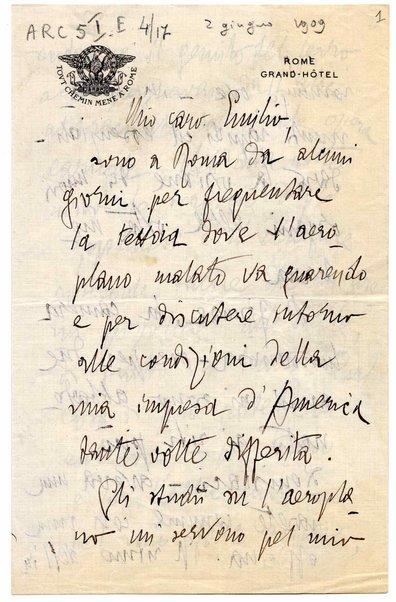 ARC 5 I. E 4/17
2 giugno 1909
1
TOUT CHEMIN MENE A ROME
ROME
GRAND-HÔTEL
Mio caro Emilio,
sono a Roma da alcuni
giorni, per frequentare
la tettoia dove l'aero
plano malato va guarendo
e per discutere intorno
alle condizioni della
mia impresa d'America
tante volte differita.
Gli studii su l'aeropla
no mi servono pel mio